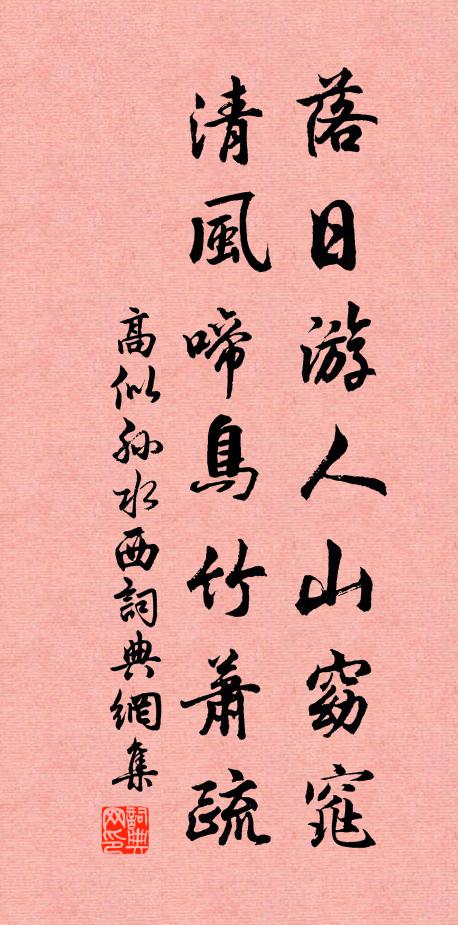 落日游人山窈窕
清風啼鳥竹蕭疏
高似孫水西詞典網集
詞典网印